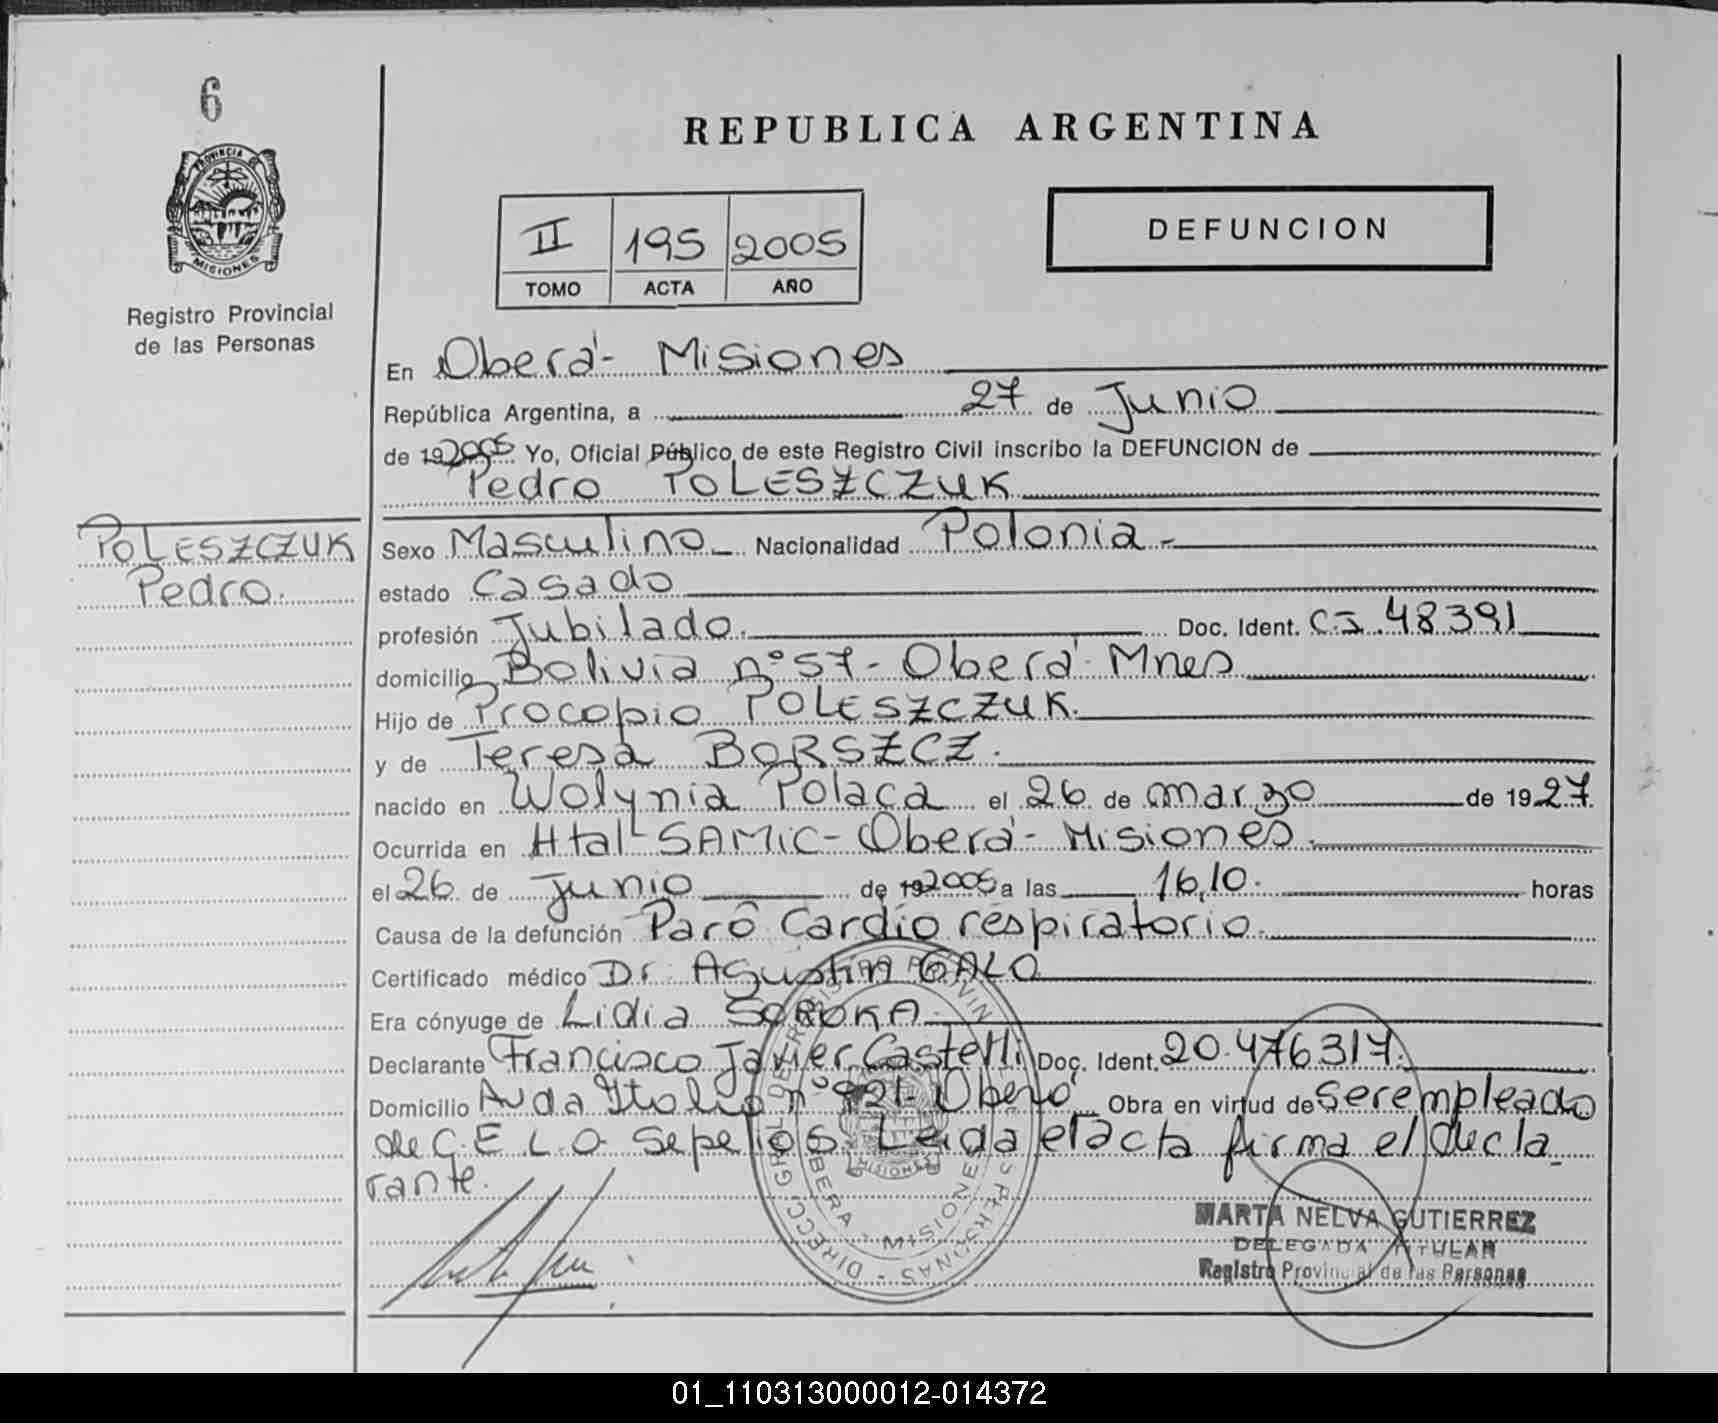 6
PROVINCIA DE
MISIONES
Registro Provincial
de las Personas
REPUBLICA ARGENTINA
II 195 2005
TOMO ACTA AÑO
DEFUNCION
En Oberá - Misiones
República Argentina, a 27 de Junio
de 19 2005 Yo, Oficial Público de este Registro Civil inscribo la DEFUNCION de
Pedro POLESZCZUK
POLESZCZUK
Pedro.
Sexo Masculino Nacionalidad Polonia -
estado Casado
profesión Jubilado. Doc. Ident. C.I. 48391
domicilio Bolivia nº 57 - Oberá - Mnes
Hijo de Procopio POLESZCZUK.
y de Teresa BORSZCZ.
nacido en Wolynia Polaca el 26 de marzo de 1927.
Ocurrida en Htal SAMIC - Oberá - Misiones.
el 26 de Junio de 19 2005 a las 16,10. horas
Causa de la defunción Paro Cardio respiratorio.
Certificado médico Dr. Agustin GALO
Era cónyuge de Lidia SOROKA.
Declarante Francisco Javier Castelli Doc. Ident. 20.476317.
Domicilio Avda Italia nº 921 - Oberá Obra en virtud de ser empleado
de C.E.L.O. Sepelios. Leida el acta firma el decla
rante.
MARTA NELVA GUTIERREZ
DELEGADA TITULAR
Registro Provincial de las Personas
OBERA - MISIONES
01_110313000012-014372